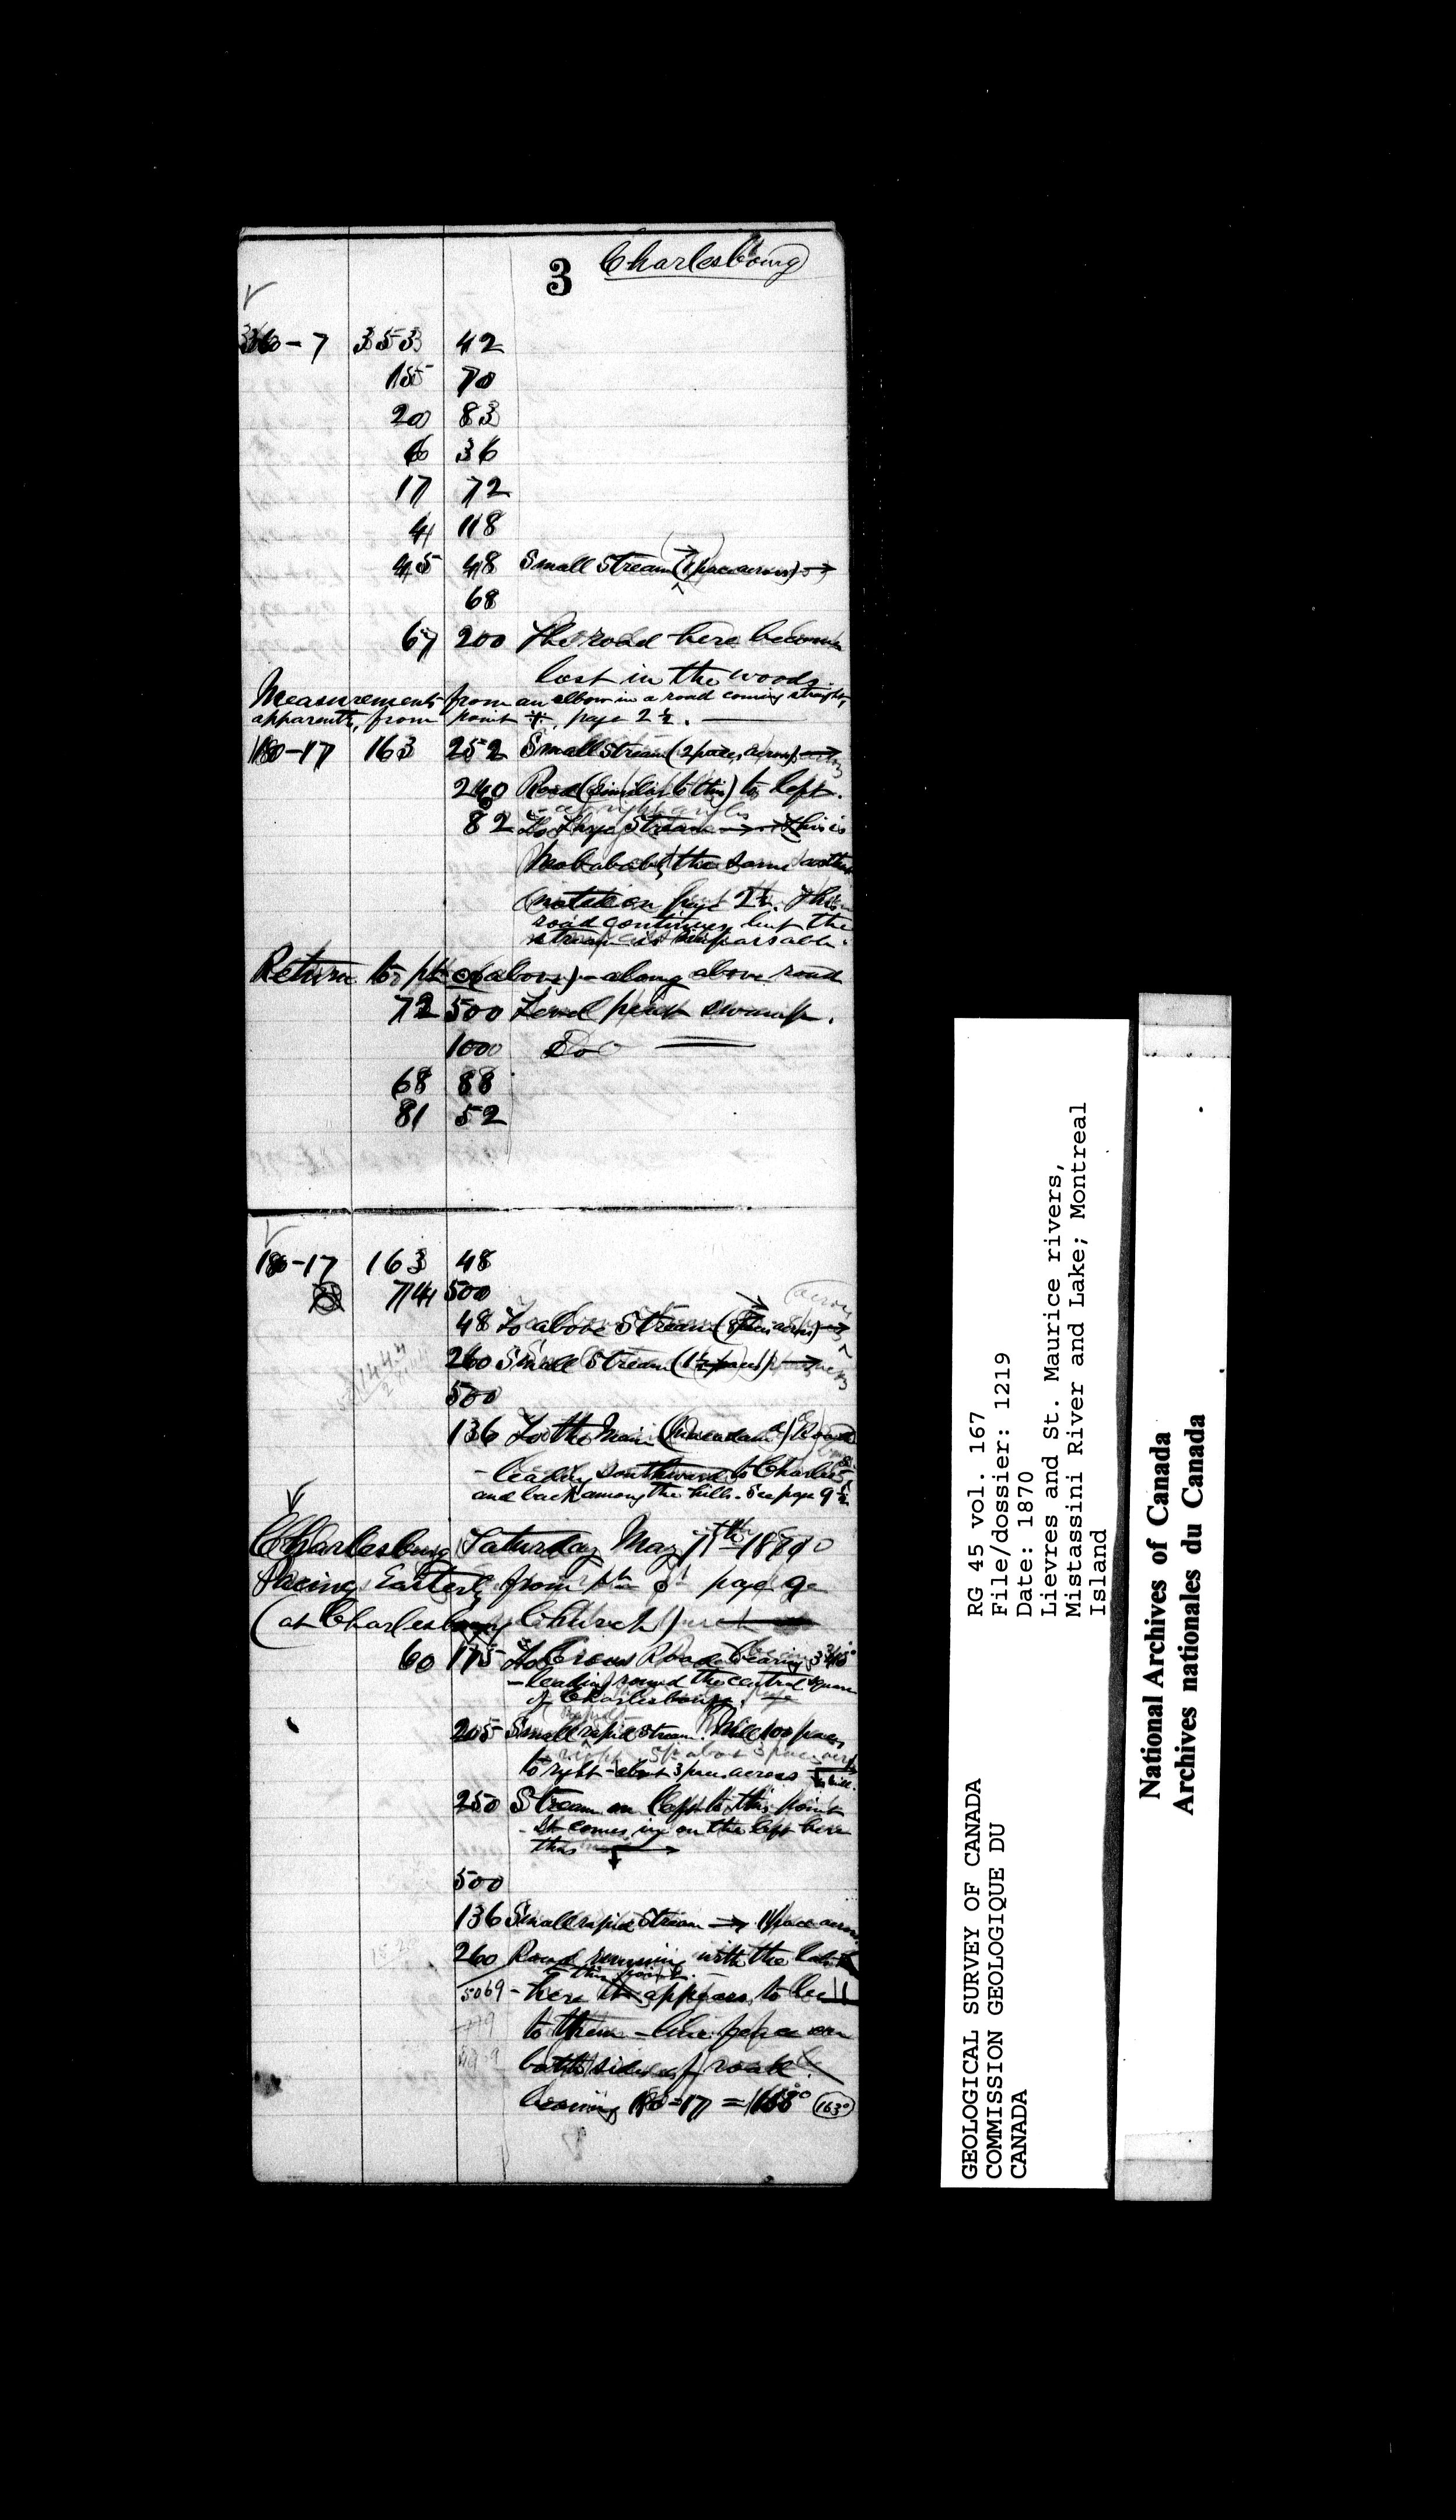 3 Charlesbourg
360-7 353 42
15 70
20 83
6 36
17 72
4 118
45 48 Small Stream (1 pace across) →
68
67 200 The road here becomes
lost in the woods.
Measurements from an elbow in a road coming straight,
apparently, from point *, page 2½.
180-17 163 252 Small Stream (2 paces across) →
240 Road (similar to this) to left.
- at right angles
82 To Large Stream → This is
probably the same as that
noted on page 2½. This
road continues but the
stream is impassable.
Return to pt (above) - along above road
72 500 Level peat swamp.
1000 Do
68 88
81 52
180-17 163 48
74 500
48 To above Stream (8 paces across) →
260 Small Stream (1½ paces) →
500
136 To the Main (Macadam) Road
- leading southward to Charles
and back among the hills - See page 9½
Charlesbourg Saturday May 7th 1870
Pacing Easterly from page 9
(at Charlesbourg Church)
60 175 To Cross Road bearing
- leading round the central square
of Charlesbourg.
205 Small rapid stream. Mill 100 paces
to right - about 3 paces across
250 Stream on left to this point
- It comes in on the left here
thus
500
136 Small rapid Stream → 1 pace across
260 Road running with the lots
to this point.
5069 - here it appears to be
to them - line fence on
both sides of road.
bearing 180-17 = 163° 163°
GEOLOGICAL SURVEY OF CANADA
COMMISSION GEOLOGIQUE DU
CANADA
RG 45 vol. 167
File/dossier: 1219
Date: 1870
Lievres and St. Maurice rivers,
Mistassini River and Lake; Montreal
Island
National Archives of Canada
Archives nationales du Canada